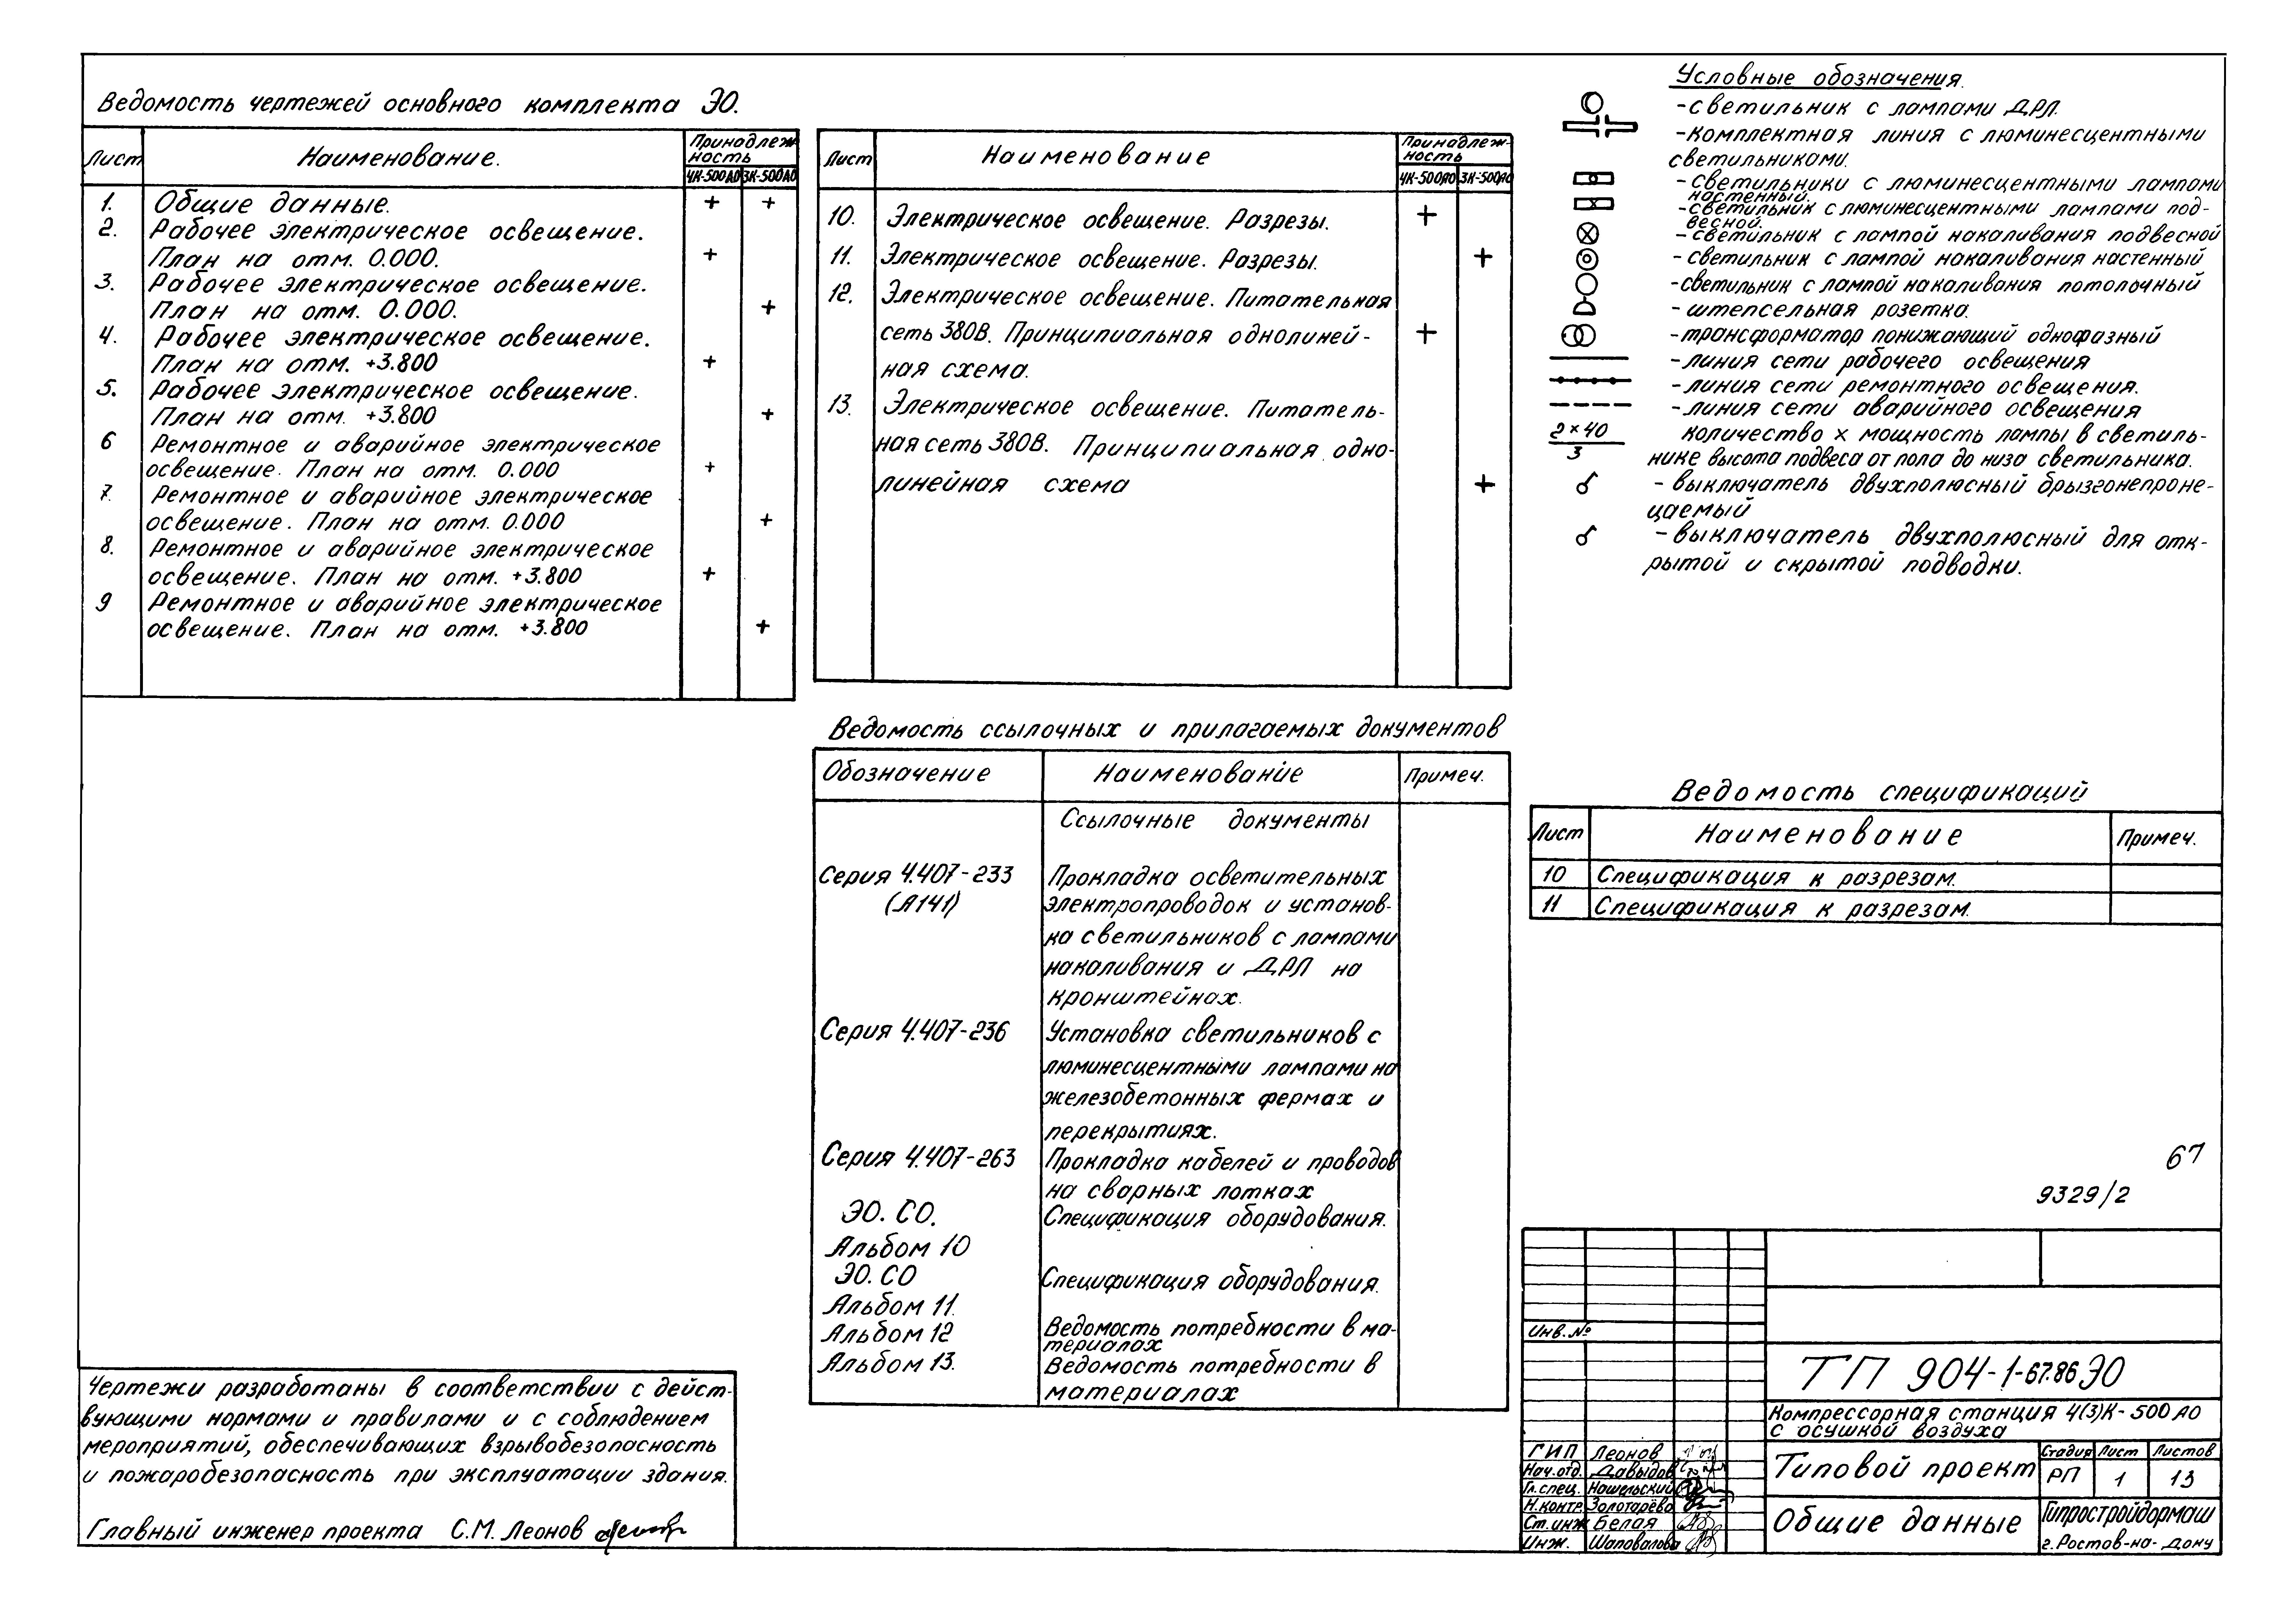 Ведомость чертежей основного комплекта ЭО.
Лист Наименование. Принадлеж-
ность
4К-500АО 3К-500АО
1. Общие данные. + +
2. Рабочее электрическое освещение.
План на отм. 0.000. +
3. Рабочее электрическое освещение.
План на отм. 0.000. +
4. Рабочее электрическое освещение.
План на отм. +3.800 +
5. Рабочее электрическое освещение.
План на отм. +3.800 +
6 Ремонтное и аварийное электрическое
освещение. План на отм. 0.000 +
7. Ремонтное и аварийное электрическое
освещение. План на отм. 0.000 +
8. Ремонтное и аварийное электрическое
освещение. План на отм. +3.800 +
9 Ремонтное и аварийное электрическое
освещение. План на отм. +3.800 +
Лист Наименование Принадлеж-
ность
4К-500АО 3К-500АО
10. Электрическое освещение. Разрезы. +
11. Электрическое освещение. Разрезы. +
12. Электрическое освещение. Питательная
сеть 380В. Принципиальная однолиней- +
ная схема.
13. Электрическое освещение. Питатель-
ная сеть 380В. Принципиальная одно-
линейная схема +
Условные обозначения.
-светильник с лампами ДРЛ.
-комплектная линия с люминесцентными
светильниками.
-светильники с люминесцентными лампами
настенный.
-светильник с люминесцентными лампами под-
весной.
-светильник с лампой накаливания подвесной
-светильник с лампой накаливания настенный
-светильник с лампой накаливания потолочный
-штепсельная розетка.
-трансформатор понижающий однофазный
-линия сети рабочего освещения
-линия сети ремонтного освещения.
-линия сети аварийного освещения
2×40 количество х мощность лампы в светиль-
3 нике высота подвеса от пола до низа светильника.
- выключатель двухполюсный брызгонепроне-
цаемый
-выключатель двухполюсный для отк-
рытой и скрытой подводки.
Ведомость ссылочных и прилагаемых документов
Обозначение Наименование Примеч.
Ссылочные документы
Серия 4.407-233 Прокладка осветительных
(А141) электропроводок и установ-
ка светильников с лампами
накаливания и ДРЛ на
кронштейнах.
Серия 4.407-236 Установка светильников с
люминесцентными лампами на
железобетонных фермах и
перекрытиях.
Серия 4.407-263 Прокладка кабелей и проводов
на сварных лотках
ЭО. СО. Спецификация оборудования.
Альбом 10
ЭО. СО Спецификация оборудования.
Альбом 11.
Альбом 12 Ведомость потребности в ма-
териалах
Альбом 13. Ведомость потребности в
материалах
Ведомость спецификаций
Лист Наименование Примеч.
10 Спецификация к разрезам.
11 Спецификация к разрезам.
67
9329/2
Чертежи разработаны в соответствии с дейст-
вующими нормами и правилами и с соблюдением
мероприятий, обеспечивающих взрывобезопасность
и пожаробезопасность при эксплуатации здания.
Главный инженер проекта С.М. Леонов
Инв.№
ТП 904-1-67.86 ЭО
Компрессорная станция 4(3)К-500АО
с осушкой воздуха
ГИП Леонов
Нач.отд. Давыдов
Гл.спец. Нашельский
Н.контр. Золотарёва
Ст.инж Белая
Инж. Шаповалова
Типовой проект Стадия Лист Листов
РП 1 13
Общие данные Гипростройдормаш
г.Ростов-на-Дону